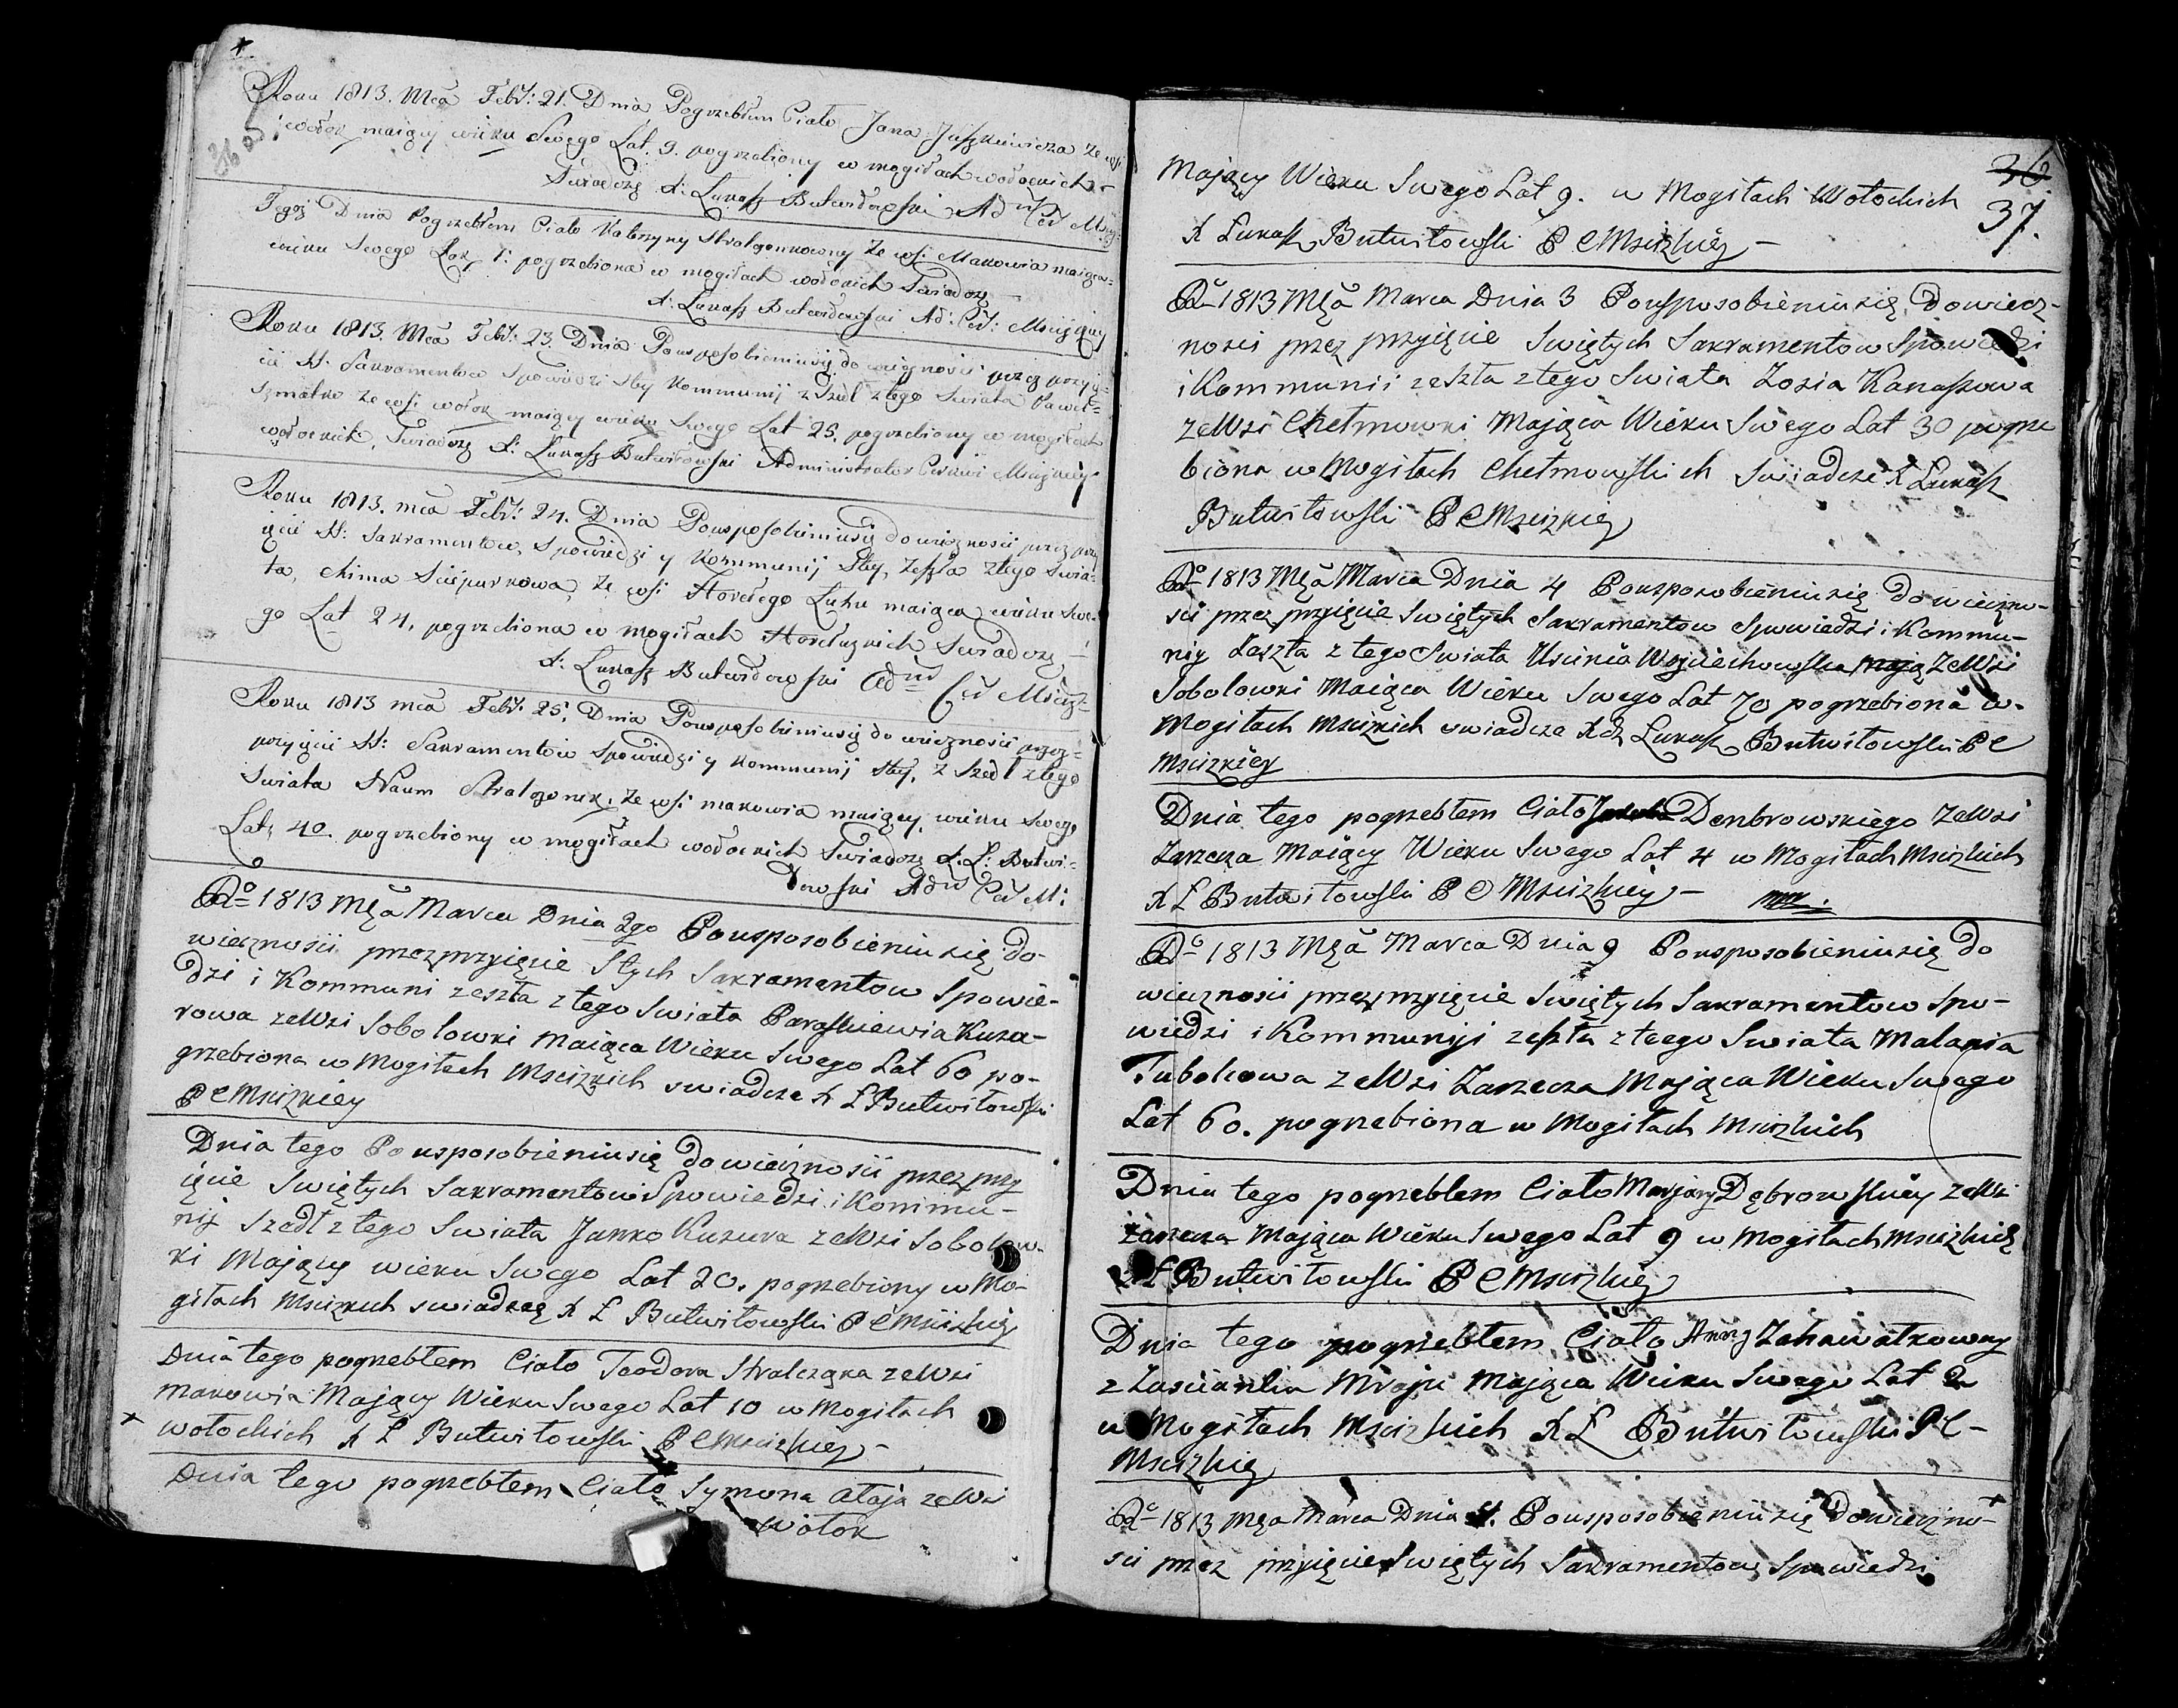 Roku 1813. Mca Febr: 21. Dnia Pogrzebłem Ciało Jana Juszkiewicza ze wsi
wołok maiący wieku Swego Lat. 9. pogrzebiony w mogiłach wołockich
Swiadczę X: Łukasz Butwiłowski Adm Cer Mśc
Tegoż Dnia Pogrzebłem Ciało Katerzyny ze wsi Makowia maiąca
wieku Swego Rok 1: pogrzebiona w mogiłach wołockich Swiadczę
X: Łukasz Butwiłowski Ad: Cer: Mściżskiey
Roku 1813. Mca Febr: 23. Dnia Po usposobieniu się do wiecznosci przez przyię-
cie SS: Sakramentow Spowiedzi Stey Kommunij zszedł z tego Swiata Paweł
ze wsi wołok maiący wieku Swego Lat 25. pogrzebiony w mogiłach
wołockich, Swiadczę X: Łukasz Butwiłowski Administrator Cerkwi Mściżskiey
Roku 1813. mca Febr: 24. Dnia Po usposobieniu się do wiecznosci przez przy
ięcie SS: Sakramentow, Spowiedzi y Kommunij Stey, Zeszła z tego Swia-
ta, Chima Sciepurkowa, ze wsi Horełego Łuhu maiąca wieku Swe-
go Lat 24, pogrzebiona w mogiłach Swiadczę
X: Łukasz Butwiłowski Adm Cer Mściż-
Roku 1813 mca Febr: 25. Dnia Po usposobieniu się do wiecznosci przez
przyięcie SS: Sakramentow Spowiedzi y Kommunij Stey, zszedł z tego
Swiata Naum ze wsi makowia maiący, wieku Swego
Lat, 40. pogrzebiony w mogiłach wołockich Swiadczę X. Ł: Butwi-
łowski Adm Cer M:
Ro 1813 Mca Marca Dnia 2go Po usposobieniu się do
wiecznosii przez przyięcie Stych Sakramentow Spowie-
dzi i Kommuni zeszła z tego Swiata Paraskiewia Kuza-
rowa ze Wsi Sobolowki Maiąca Wieku Swego Lat 60 po-
grzebiona w Mogiłach Msciżkich swiadcze X Ł Butwiłowski
P C Msciżkiey
Dnia tego Po usposobieniu się do wiecznosii przez przy
ięcie Swiętych Sakramentow Spowiedzi i Kommu-
nij szedł z tego Swiata Janko Kuzura ze Wsi Sobolow-
ki Mający wieku Swego Lat 20. pogrzebiony w Mo-
giłach Msciżkich swiadczę X Ł Butwiłowski P C Msciżkiey
Dnia tego pogrzebłem Ciało Teodora ze Wsi
makowia Mający Wieku Swego Lat 10 w Mogiłach
wołockich X Ł Butwiłowski P C Msciżkiey
Dnia tego pogrzebłem Ciało Symona ze Wsi
wołok
36
37.
Mający Wieku Swego Lat 9. w Mogiłach Wołockich
X Łukasz Butwiłowski P C Msciżkiey
Ro 1813 Mca Marca Dnia 3 Po usposobieniu się do wiecz-
nosci przez przyięcie Swiętych Sakramentow Spowiedzi
i Kommunii zeszła z tego Swiata Zosia Kanaszowa
ze Wsi Chełmowki Mająca Wieku Swego Lat 30 pogrze
biona w Mogiłach Chełmowskich Swiadcze X Łukasz
Butwiłowski P C Msciżkiey
Ro 1813 Mca Marca Dnia 4 Po usposobieniu się do wieczno-
sci przez przyięcie Swiętych Sakramentow Spowiedzi i Kommu-
nij Zeszła z tego Swiata Uscinia Woyciechowska ze Wsi
Sobolowki Maiąca Wieku Swego Lat 70 pogrzebiona w
Mogiłach Msciżkich swiadcze Xdz Łukasz Butwiłowski P C
Msciżkiey
Dnia tego pogrzebłem Ciało Jakuba Denbrowskiego ze Wsi
Zarzecza Maiący Wieku Swego Lat 4 w Mogiłach Msciżkich
X Ł Butwiłowski P C Msciżkiey
Ro 1813 Mca Marca Dnia 9 Po usposobieniu się do
wiecznosii przez przyięcie Swiętych Sakramentow Spo-
wiedzi i Kommuniji zeszła z tego Swiata Malania
Tubolcowa ze Wsi Zarzecza Mająca Wieku Swego
Lat 60. pogrzebiona w Mogiłach Msciżkich
Dnia tego pogrzebłem Ciało Maryany Dębrowskiey ze Wsi
Zarzecza Mająca Wieku Swego Lat 9 w Mogiłach Msciżkich
X Ł Butwiłowski P C Msciżkiey
Dnia tego pogrzebłem Ciało Anny Zahawałkowny
z Zascianka Mroju Mająca Wieku Swego Lat 2
w Mogiłach Msciżkich X Ł Butwiłowski P C
Msciżkiey
Ro 1813 Mca Marca Dnia Po usposobieniu się do wieczno-
sci przez przyięcie Swiętych Sakramentow Spowiedzi